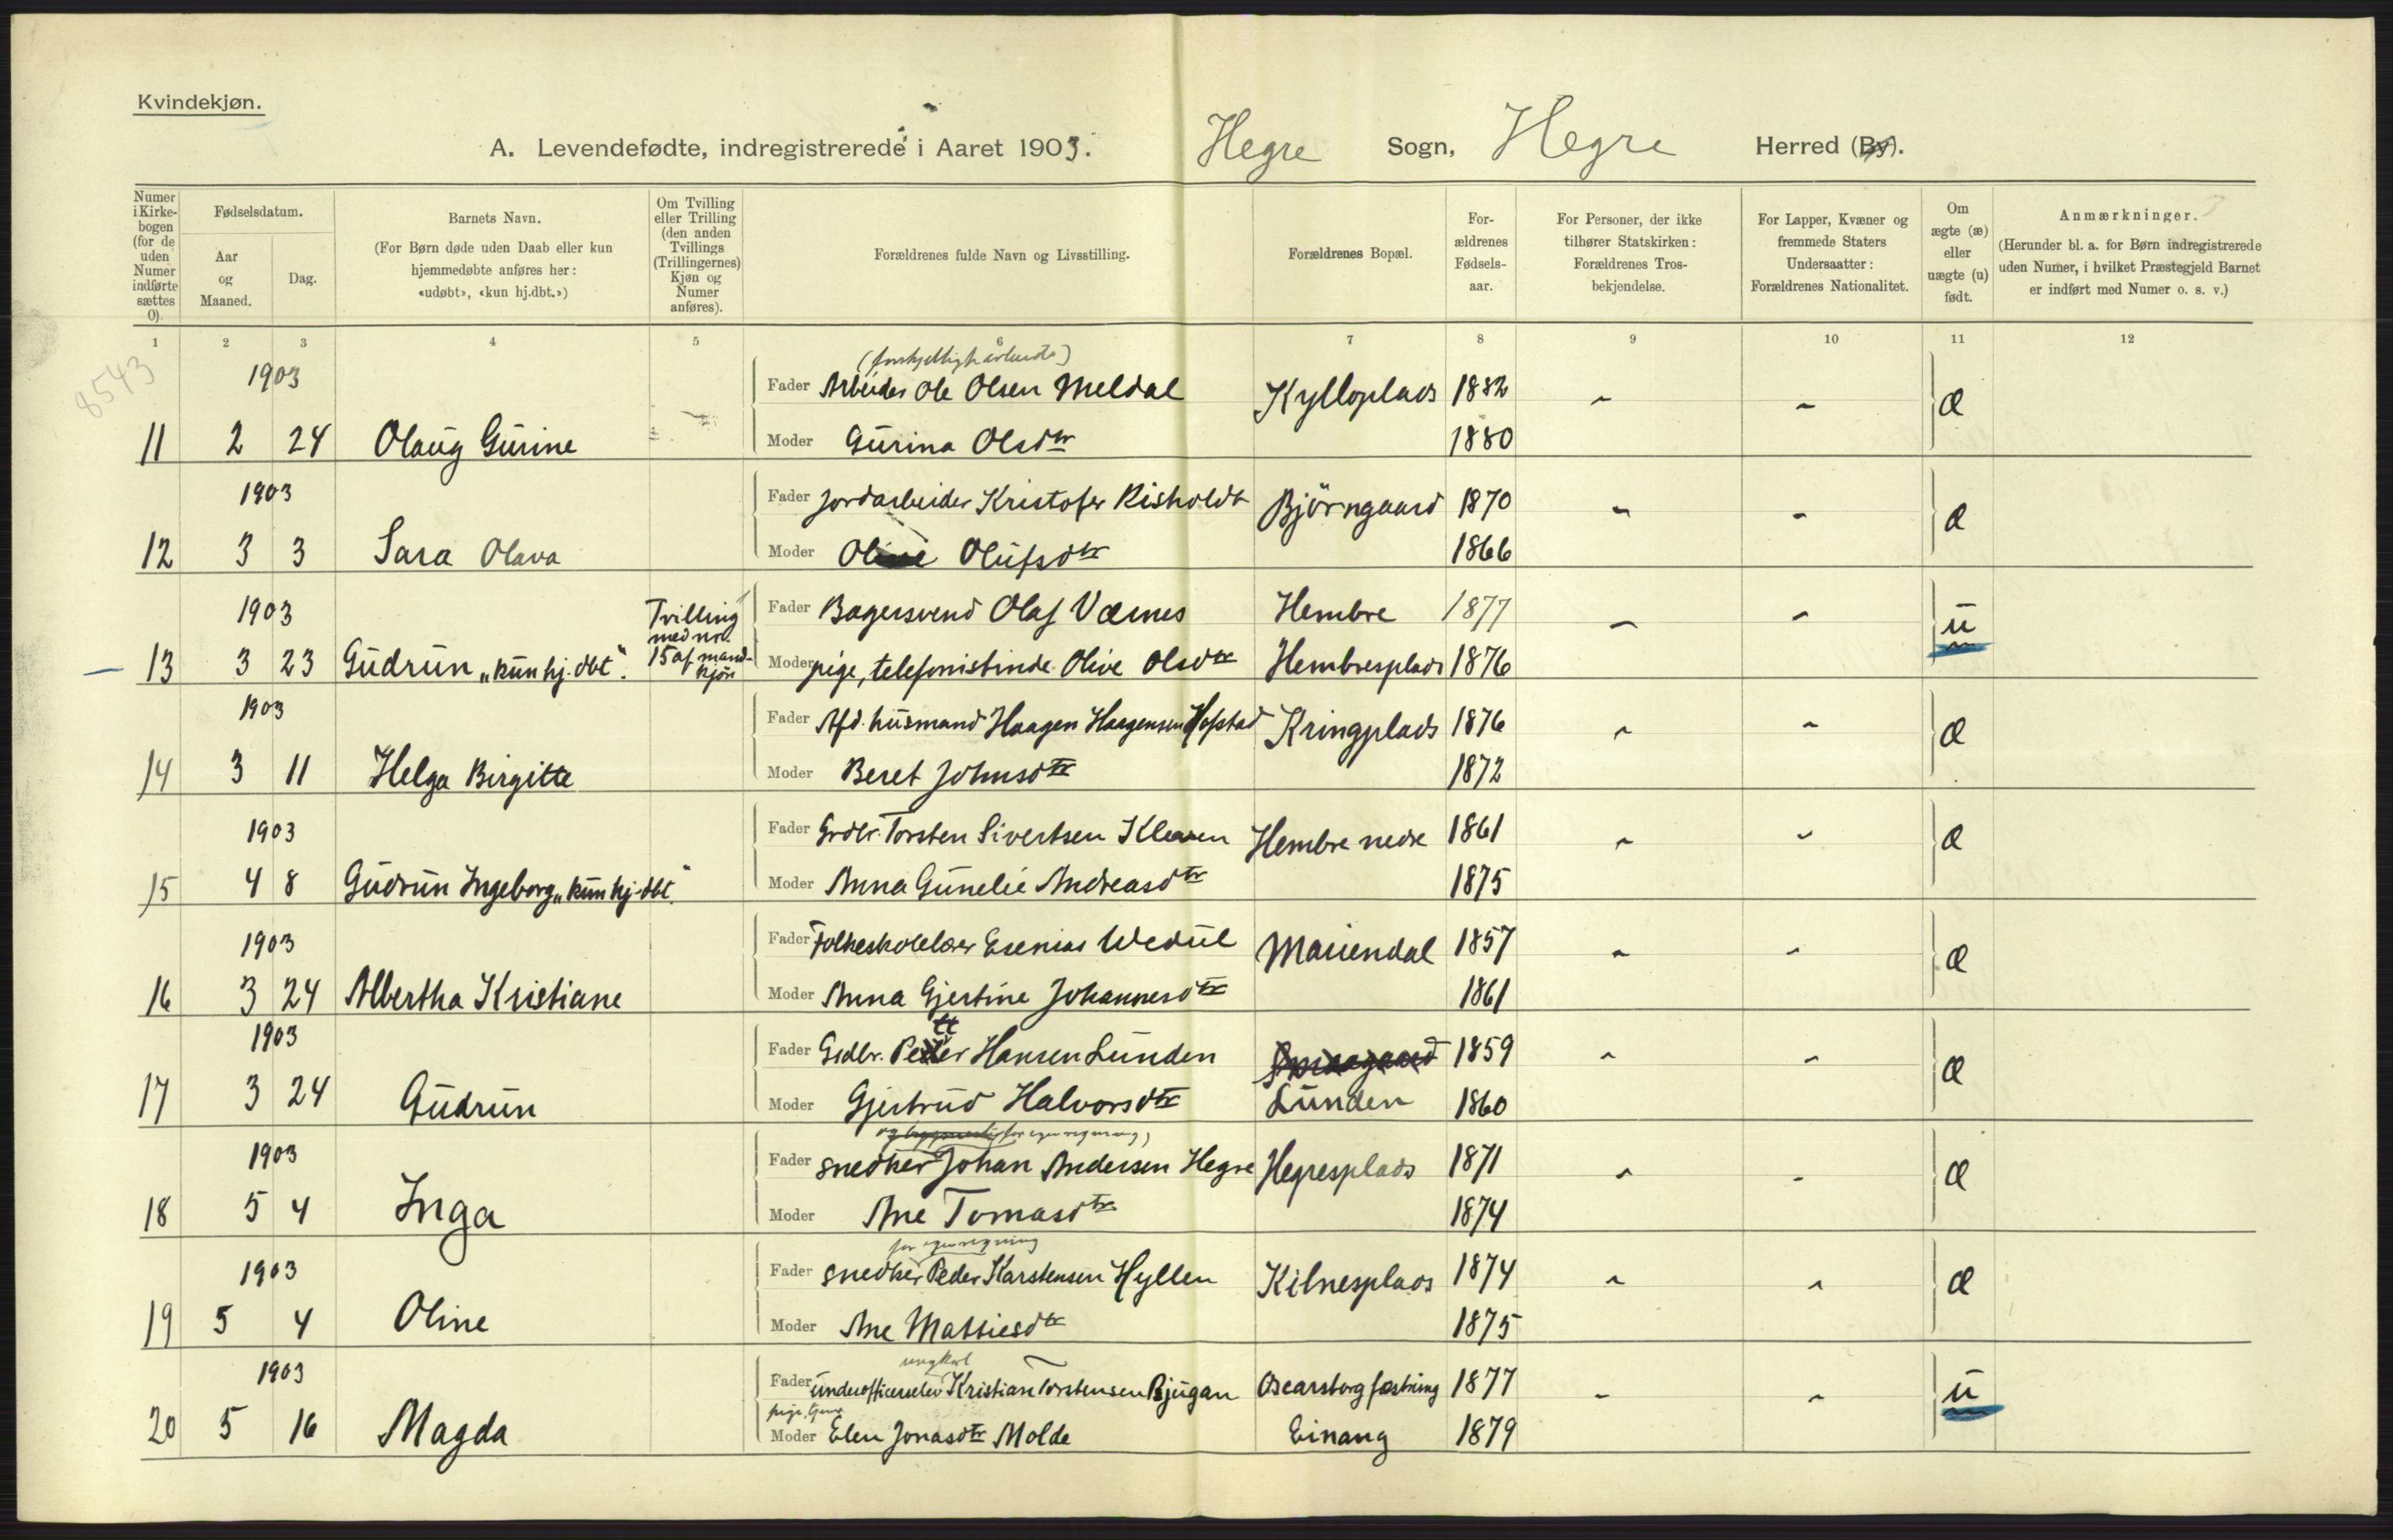 Kvindekjøn.
A. Levendefødte, indregistrerede i Aaret 1903. Hegre Sogn, Hegre Herred (By).
Numer i Kirkebogen (for de uden Numer indførte sættes 0).
Fødselsdatum.
Aar og Maaned.
Dag.
Barnets Navn.
(For Børn døde uden Daab eller kun hjemmedøbte anføres her: «udøbt», «kun hj.dbt.»)
Om Tvilling eller Trilling (den anden Tvillings (Trillingernes) Kjøn og Numer anføres).
Forældrenes fulde Navn og Livsstilling.
Forældrenes Bopæl.
Forældrenes Fødselsaar.
For Personer, der ikke tilhører Statskirken: Forældrenes Trosbekjendelse.
For Lapper, Kvæner og fremmede Staters Undersaatter: Forældrenes Nationalitet.
Om ægte (æ) eller uægte (u) født.
Anmærkninger.
(Herunder bl. a. for Børn indregistrerede uden Numer, i hvilket Præstegjeld Barnet er indført med Numer o. s. v.)
1 2 3 4 5 6 7 8 9 10 11 12
8543
1903 Fader Arbeider Ole Olsen Meldal Kylloplads 1882 æ
11 2 24 Olaug Gurine Moder Gurina Olsdtr 1880
1903 Fader Jordarbeider Kristofer Risholdt Björngaard 1870 æ
12 3 3 Sara Olava Moder Olufsdtr 1866
1903 Tvilling med no. 15 af mandkjön Fader Bagersvend Olaf Værnes Hembre 1877 u
13 3 23 Gudrun „kun hj. dbt“. Moder pige, telefonistinde Olive Olsdtr Hembresplads 1876
1903 Fader Afd. husmand Haagen Haagensen Hofstad Kringplads 1876 æ
14 3 11 Helga Birgitte Moder Beret Johnsdtr 1872
1903 Fader Grdbr. Torsten Sivertsen Kleven Hembre nedre 1861 æ
15 4 8 Gudrun Ingeborg „kun hj. dbt.“ Moder Anna Gunelie Andreasdtr 1875
1903 Fader Folkeskolelærer Esenias Wedul Mariendal 1857 æ
16 3 24 Albertha Kristiane Moder Anna Gjertine Johannesdtr 1861
1903 Fader Grdbr. Petter Hansen Lunden 1859 æ
17 3 24 Gudrun Moder Gjertrud Halvorsdtr Lunden 1860
for egen regning)
1903 Fader snedker Johan Andersen Hegre Hegresplads 1871 æ
18 5 4 Inga Moder Ane Tomasdtr 1874
for egen regning
1903 Fader snedker Peder Karstensen Hyllen Kilnesplads 1874 æ
19 5 4 Oline Moder Ane Mattiesdtr 1875
ungkarl
1903 Fader underofficerselev Kristian Torstensen Bjugan Oscarsborg fæstning 1877 u
pige,
20 5 16 Magda Moder Elen Jonasdtr Molde Einang 1879